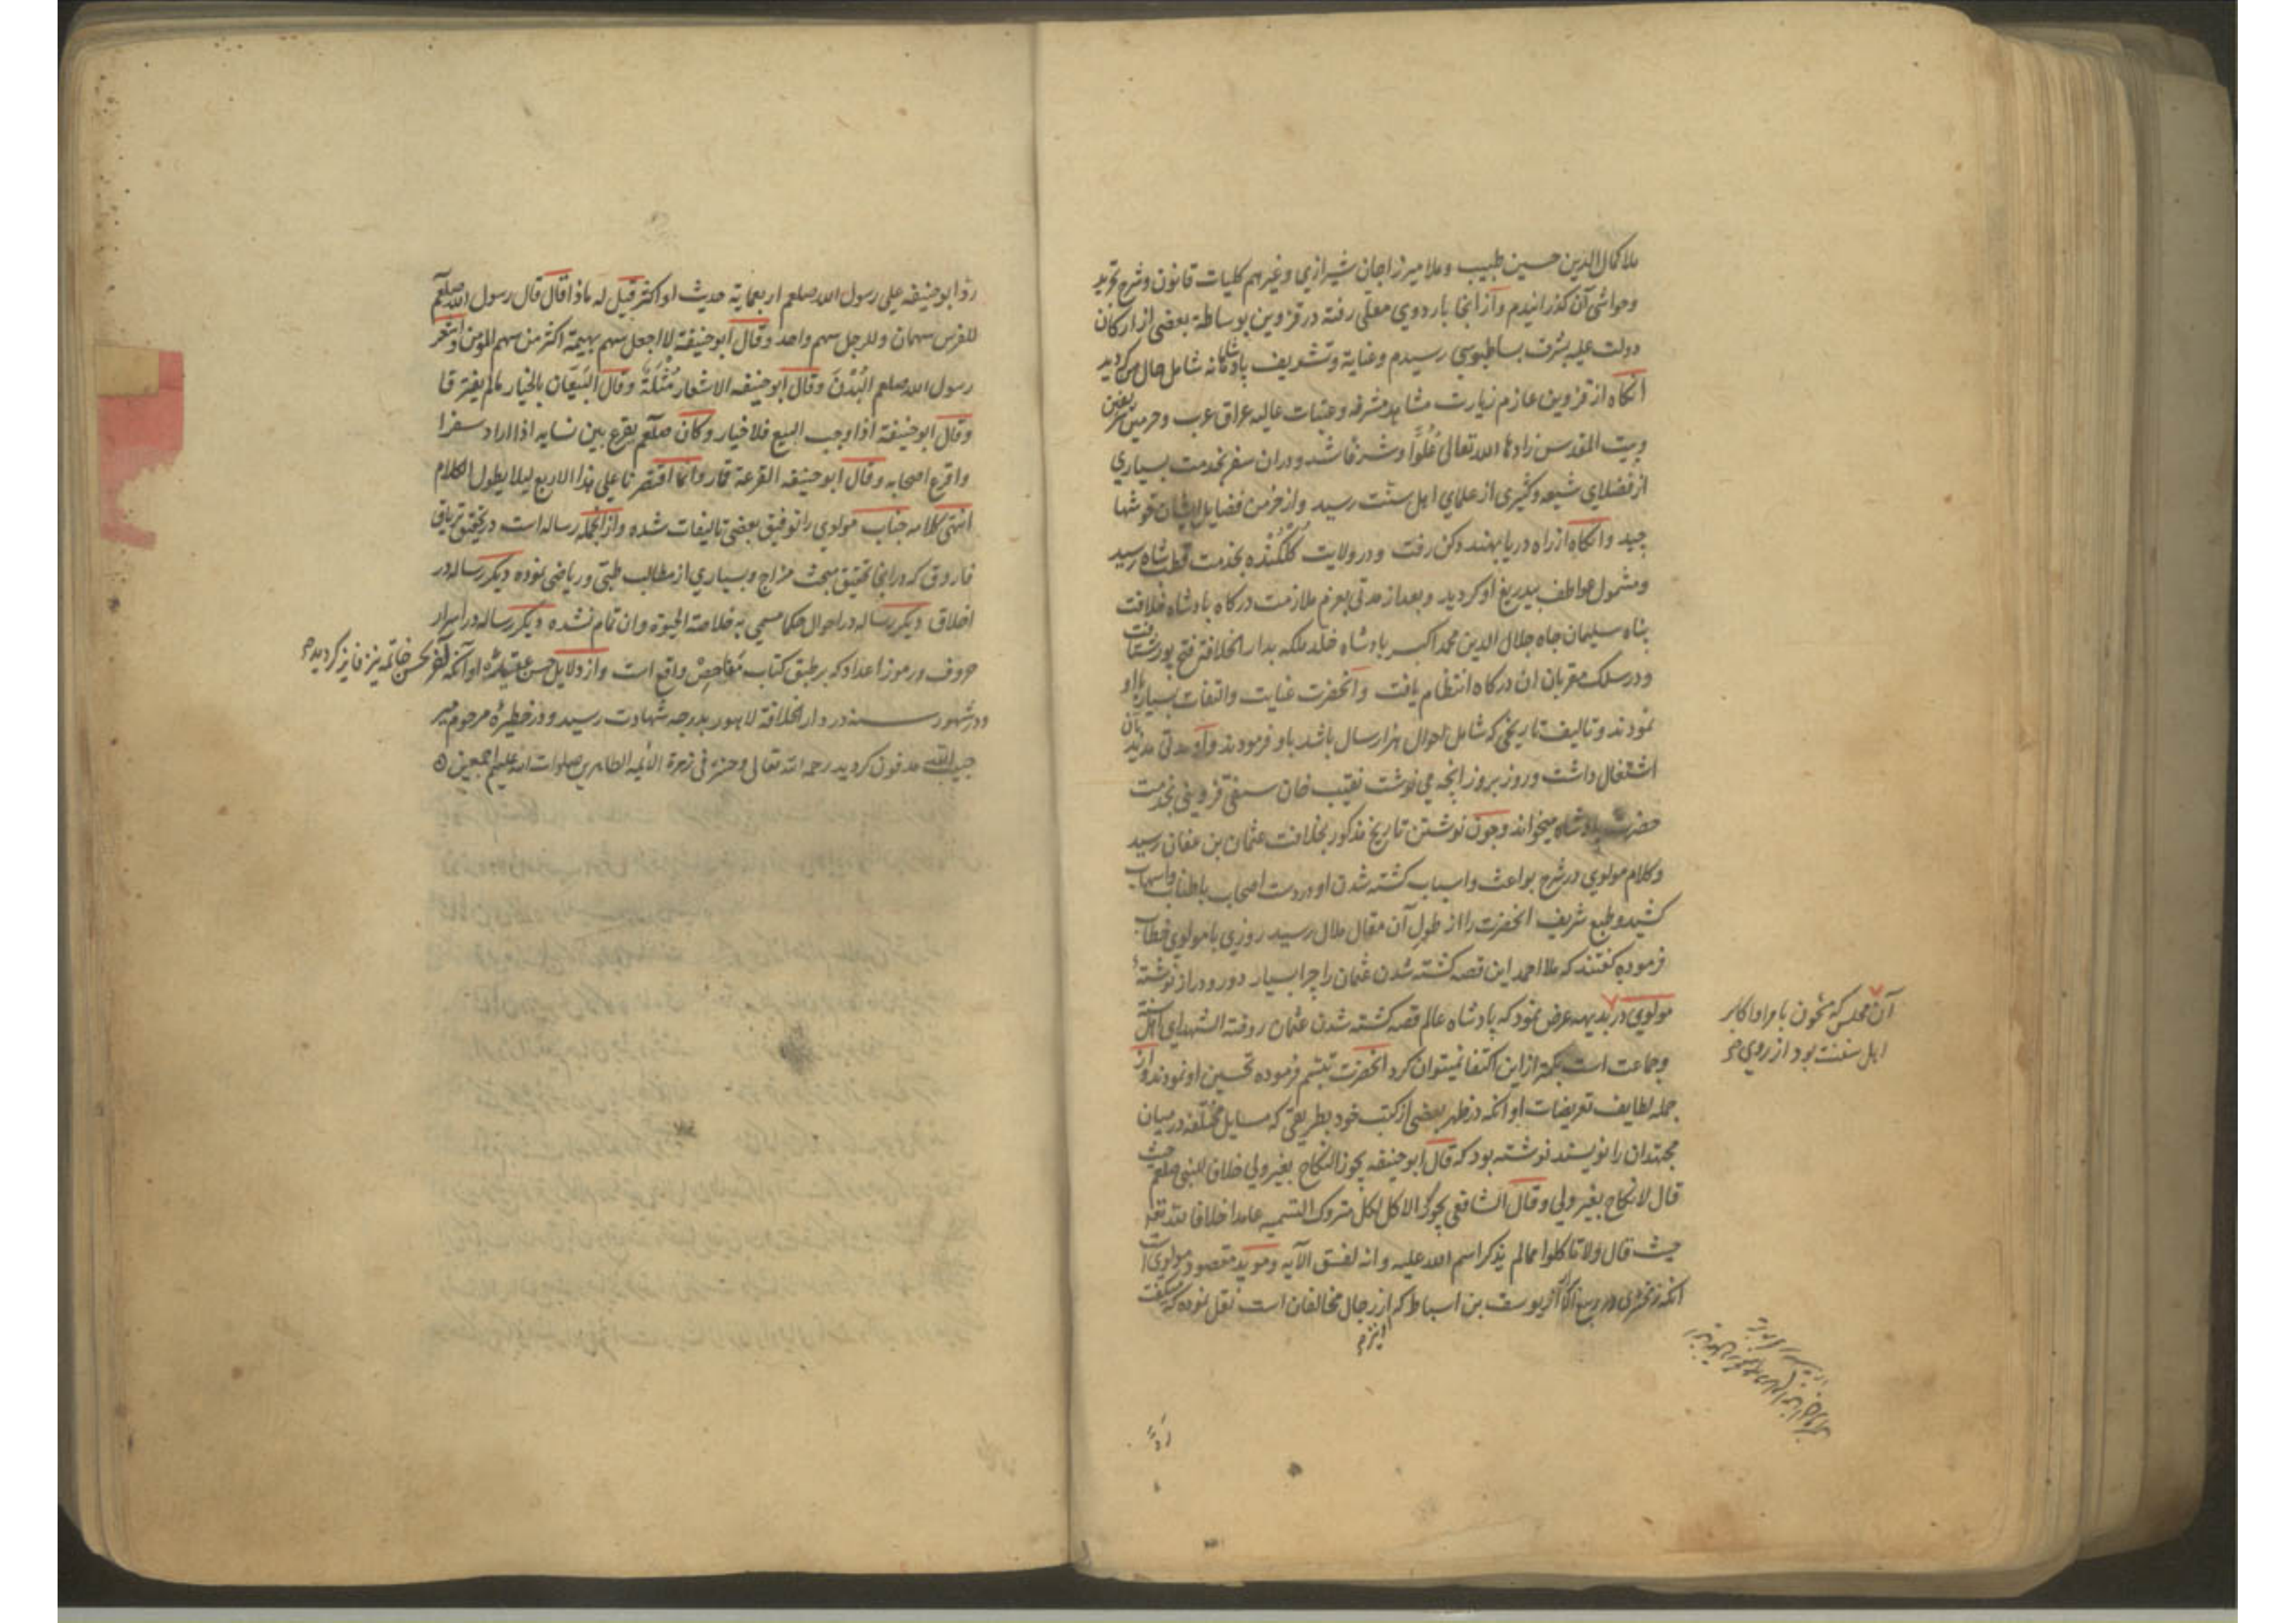 ملا کمال الدین حسین طبیب و ملا میرزا جان شیرازی و غیرهم کلیات قانون و شرح تجرید
و حواشی آن گذرانیدم و از انجا باردوی معلی رفته در قزوین بوساطة بعضی از ارکان
دولت علیه بشرف بساطبوسی رسیدم و عنایة و تشریف پادشاهانه شامل حال من کردید
انکاه از قزوین عازم زیارت مشاهد مشرفه و عتبات عالیه عراق عرب و حرمین شریفین
و بیت المقدس زادها الله تعالی عُلُوّا و شرفا شد و دران سفر بخدمت بسیاری
از فضلای شیعه و کثیری از علمای اهل سنت رسید و از خرمن فضایل ایشان خوشها
چید و انکاه از راه دریا بهند دکن رفت و در ولایت کلکنده بخدمت قطب شاه رسید
و مشمول عواطف بیدریغ او کردید و بعد از مدتی بعزم ملازمت درکاه پادشاه خلافت
پناه سلیمان جاه جلال الدین محمد اکبر پادشاه خلد ملکه بدار الخلافة فتح پور شتافت
و در سلک مقربان ان درکاه انتظام یافت و انحضرت عنایت و التفات بسیار باو
نمودند و تالیف تاریخی که شامل احوال هزار سال باشد باو فرمودند و او مدتی مدید بآن
اشتغال داشت و روز بروز انچه می نوشت نقیب خان سنفی قزوینی بخدمت
حضرت پادشاه میخواند و چون نوشتن تاریخ مذکور بخلافت عثمان بن عفان رسید
و کلام مولوی در شرح بواعث و اسباب کشته شدن او و ردت اصحاب باطناب و اسهاب
کشید و طبع شریف انحضرت را از طول آن مقال ملال رسید روزی با مولوی خطاب
فرموده کفتند که ملا احمد این قصه کشته شدن عثمان را چرا بسیار دور و دراز نوشتهٔ
مولوی در بدیهه عرض نمود که پادشاه عالم قصه کشته شدن عثمان روضة الشهدای اهل سنة
آن مجلس که مشحون بامرا و اکابر
اهل سنت بود از روی
و جماعت است بکمتر از این اکتفا نمیتوان کرد انحضرت تبسم فرموده تحسین او نمودند و از
جمله لطایف تعریضات او انکه در ظهر بعضی از کتب خود بطریقی که مسایل مختلفه در میان
مجتهدان را نویسند نوشته بود که قال ابو حنیفه یجوز النکاح بغیر ولی خلافا للنبی صلعم حیث
قال لا نکاح بغیر ولی و قال الشافعی یجوز الاکل لکل متروک التسمیه عامدا خلافا لله تعالی
حیث قال و لا تاکلوا مما لم یذکر اسم الله علیه و انه لفسق الآیه و موید مقصود مولوی است
انکه زمخشری در ربیع الابرار از یوسف بن اسباط که از رجال مخالفان است نقل نموده که میکفت
رد ابو حنیفه علی رسول الله صلعم اربعمایة حدیث او اکثر قیل له ماذا قال قال رسول الله صلعم
للفرس سهمان و للرجل سهم واحد و قال ابو حنیفة لا اجعل سهم بهیمة اکثر من سهم المؤمن و اشعر
رسول الله صلعم البُدْنَ و قال ابو حنیفه الاشعار مُثْلَةٌ و قال البَیّعان بالخیار ما لم یفترقا
و قال ابو حنیفة اذا وجب البیع فلا خیار و کان صلعم یقرع بین نسایه اذا اراد سفرا
و اقرع اصحابه و قال ابو حنیفه القرعة قمار و انما اقتصرنا علی هذا الاربع لیلا یطول الکلام
انتهی کلامه جناب مولوی را توفیق بعضی تالیفات شده و از انجمله رساله است در تحقیق تریاق
فاروق که در انجا تحقیق مبحث مزاج و بسیاری از مطالب طبی و ریاضی نموده دیکر رساله در
اخلاق دیکر رساله در احوال حکما مسمی به خلاصة الحیوة و ان تمام نشده دیکر رساله در اسرار
حروف و رموز اعداد که بر طبق کتاب مفاحص واقع است و از دلایل حسن عقیدهٔ او آنکه آخر بحسن خاتمه نیز فایز کردیده
و در شهور سنه در دار الخلافة لاهور بدرجه شهادت رسید و در خطیرهٔ مرحوم میر
حبیب الله مدفون کردید رحمه الله تعالی و حشره فی زمرة الائمه الطاهرین صلوات الله علیهم اجمعین